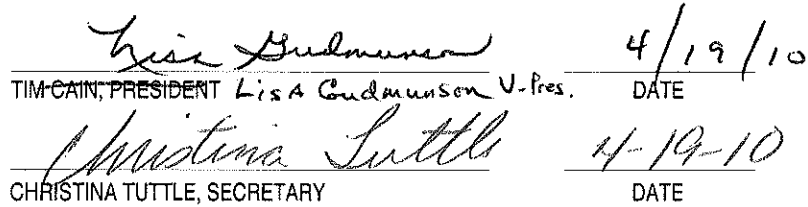 Lisa Gudmunson 4/19/10
TIM CAIN, PRESIDENT LisA Gudmunson V-Pres. DATE
Christina Tuttle 4-19-10
CHRISTINA TUTTLE, SECRETARY DATE